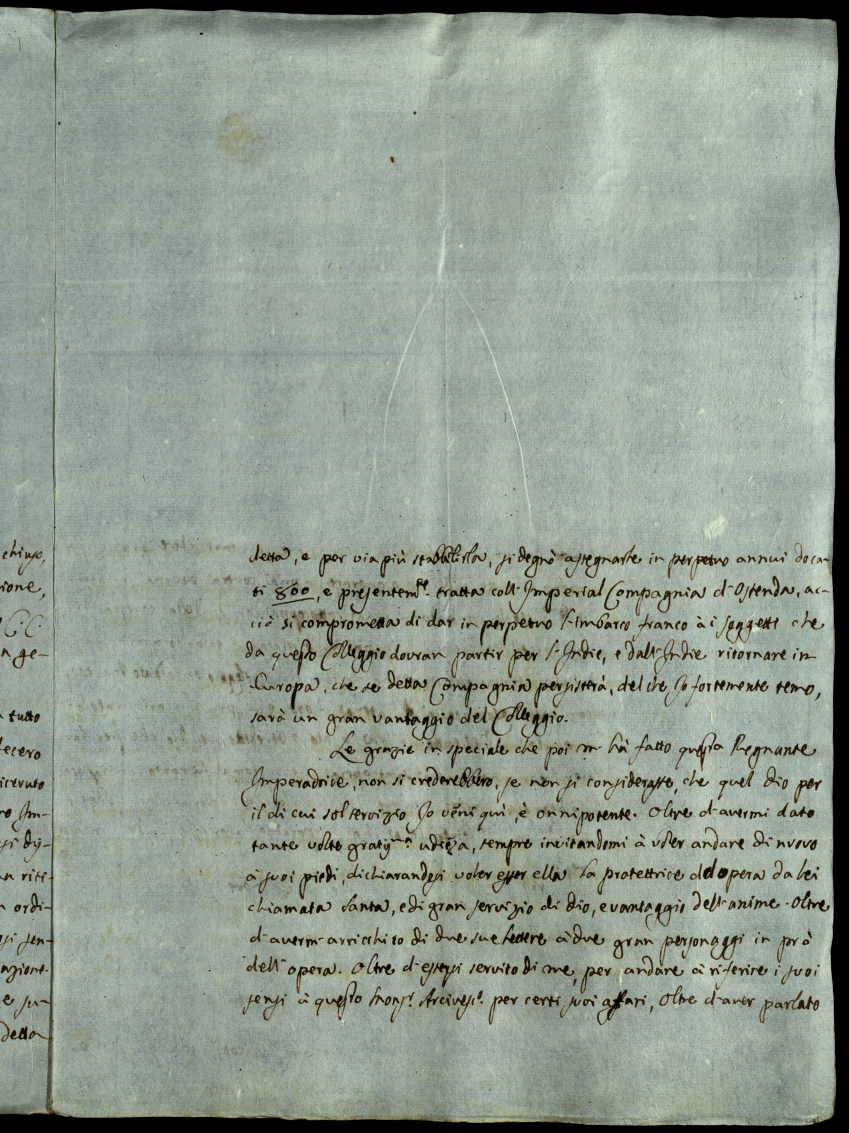 chiuso,
ione,
C. C.
a ge-
a tutto
fecero
icevuto
ro Im-
si dy-
an riti-
n ordi-
si sen-
azione
e su-
detta
detta, e per via più stabbilirla, si degnò assegnarle in perpetuo annui doca-
ti 800, e presentem.te tratta coll'Imperial Compagnia d'Ostenda, ac-
ciò si comprometta di dar in perpetuo l'imbarco franco à i soggetti che
da questo Colleggio dovran partir per l'Indie, e dall'Indie ritornare in
Europa, che se detta Compagnia persisterà, del che Io fortemente temo,
sarà un gran vantaggio del Colleggio.
Le grazie in speciale che poi m'hà fatto questa Regnante
Imperadrice, non si crederebbero, se non si considerasse, che quel Dio per
il di cui sol servizio Io vẽni qui, è onnipotente. Oltre d'avermi dato
tante volte gratiss.ma udiẽza, sempre invitandomi à voler andare di nuovo
à suoi piedi, dichiarandosi voler esser ella la protettrice dell'opera da lei
chiamata Santa, e di gran servizio di Dio, e vantaggio dell'anime. Oltre
d'avermi arricchito di due sue lettere à due gran personaggi in prò
dell'opera. Oltre d'essersi servito di me, per andare à riferire i suoi
sensi à questo Monsr. Arcivesc.o per certi suoi affari, Oltre d'aver parlato